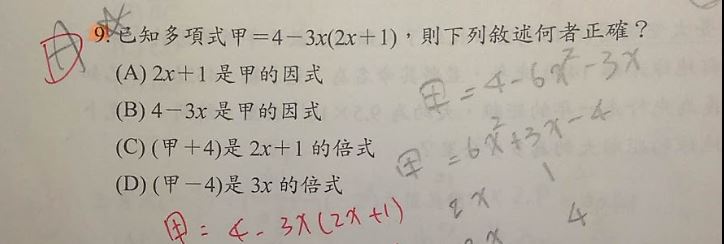 D
9. 已知多項式甲=4-3x(2x+1),則下列敘述何者正確?
(A) 2x+1 是甲的因式
甲=4-6x²-3x
(B) 4-3x 是甲的因式
(C) (甲+4)是 2x+1 的倍式
甲=6x²+3x-4
(D) (甲-4)是 3x 的倍式
2x 1
甲=4-3x(2x+1)
4